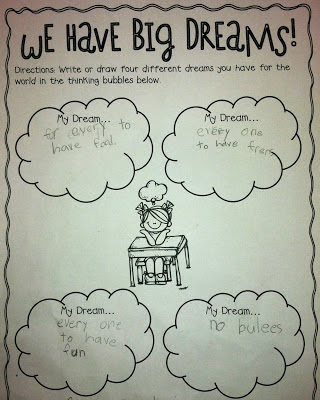 WE HAVE BIG DREAMS!
Directions: Write or draw four different dreams you have for the
world in the thinking bubbles below.
My Dream...
for every to
have food.
My Dream...
every one
to have frens
My Dream...
every one
to have
fun
My Dream...
no bulees